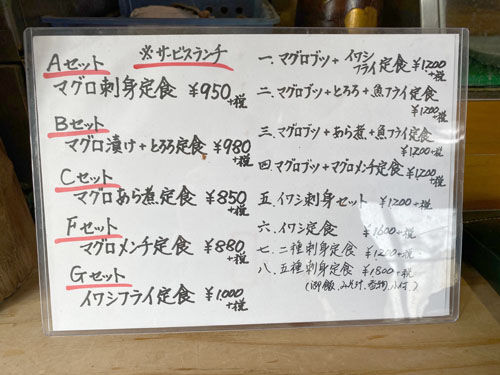 ※サービスランチ
Aセット
マグロ刺身定食 ¥950+税
Bセット
マグロ漬け+とろろ定食 ¥980+税
Cセット
マグロあら煮定食 ¥850+税
Fセット
マグロメンチ定食 ¥880+税
Gセット
イワシフライ定食 ¥1000+税
一.マグロブツ+イワシフライ定食 ¥1200+税
二.マグロブツ+とろろ+魚フライ定食
¥1200+税
三.マグロブツ+あら煮+魚フライ定食
¥1200+税
四.マグロブツ+マグロメンチ定食 ¥1200+税
五.イワシ刺身セット ¥1200+税
六.イワシ定食 ¥1600+税
七.二種刺身定食 ¥1200+税
八.五種刺身定食 ¥1800+税
(御飯.みそ汁.香物.小付.)